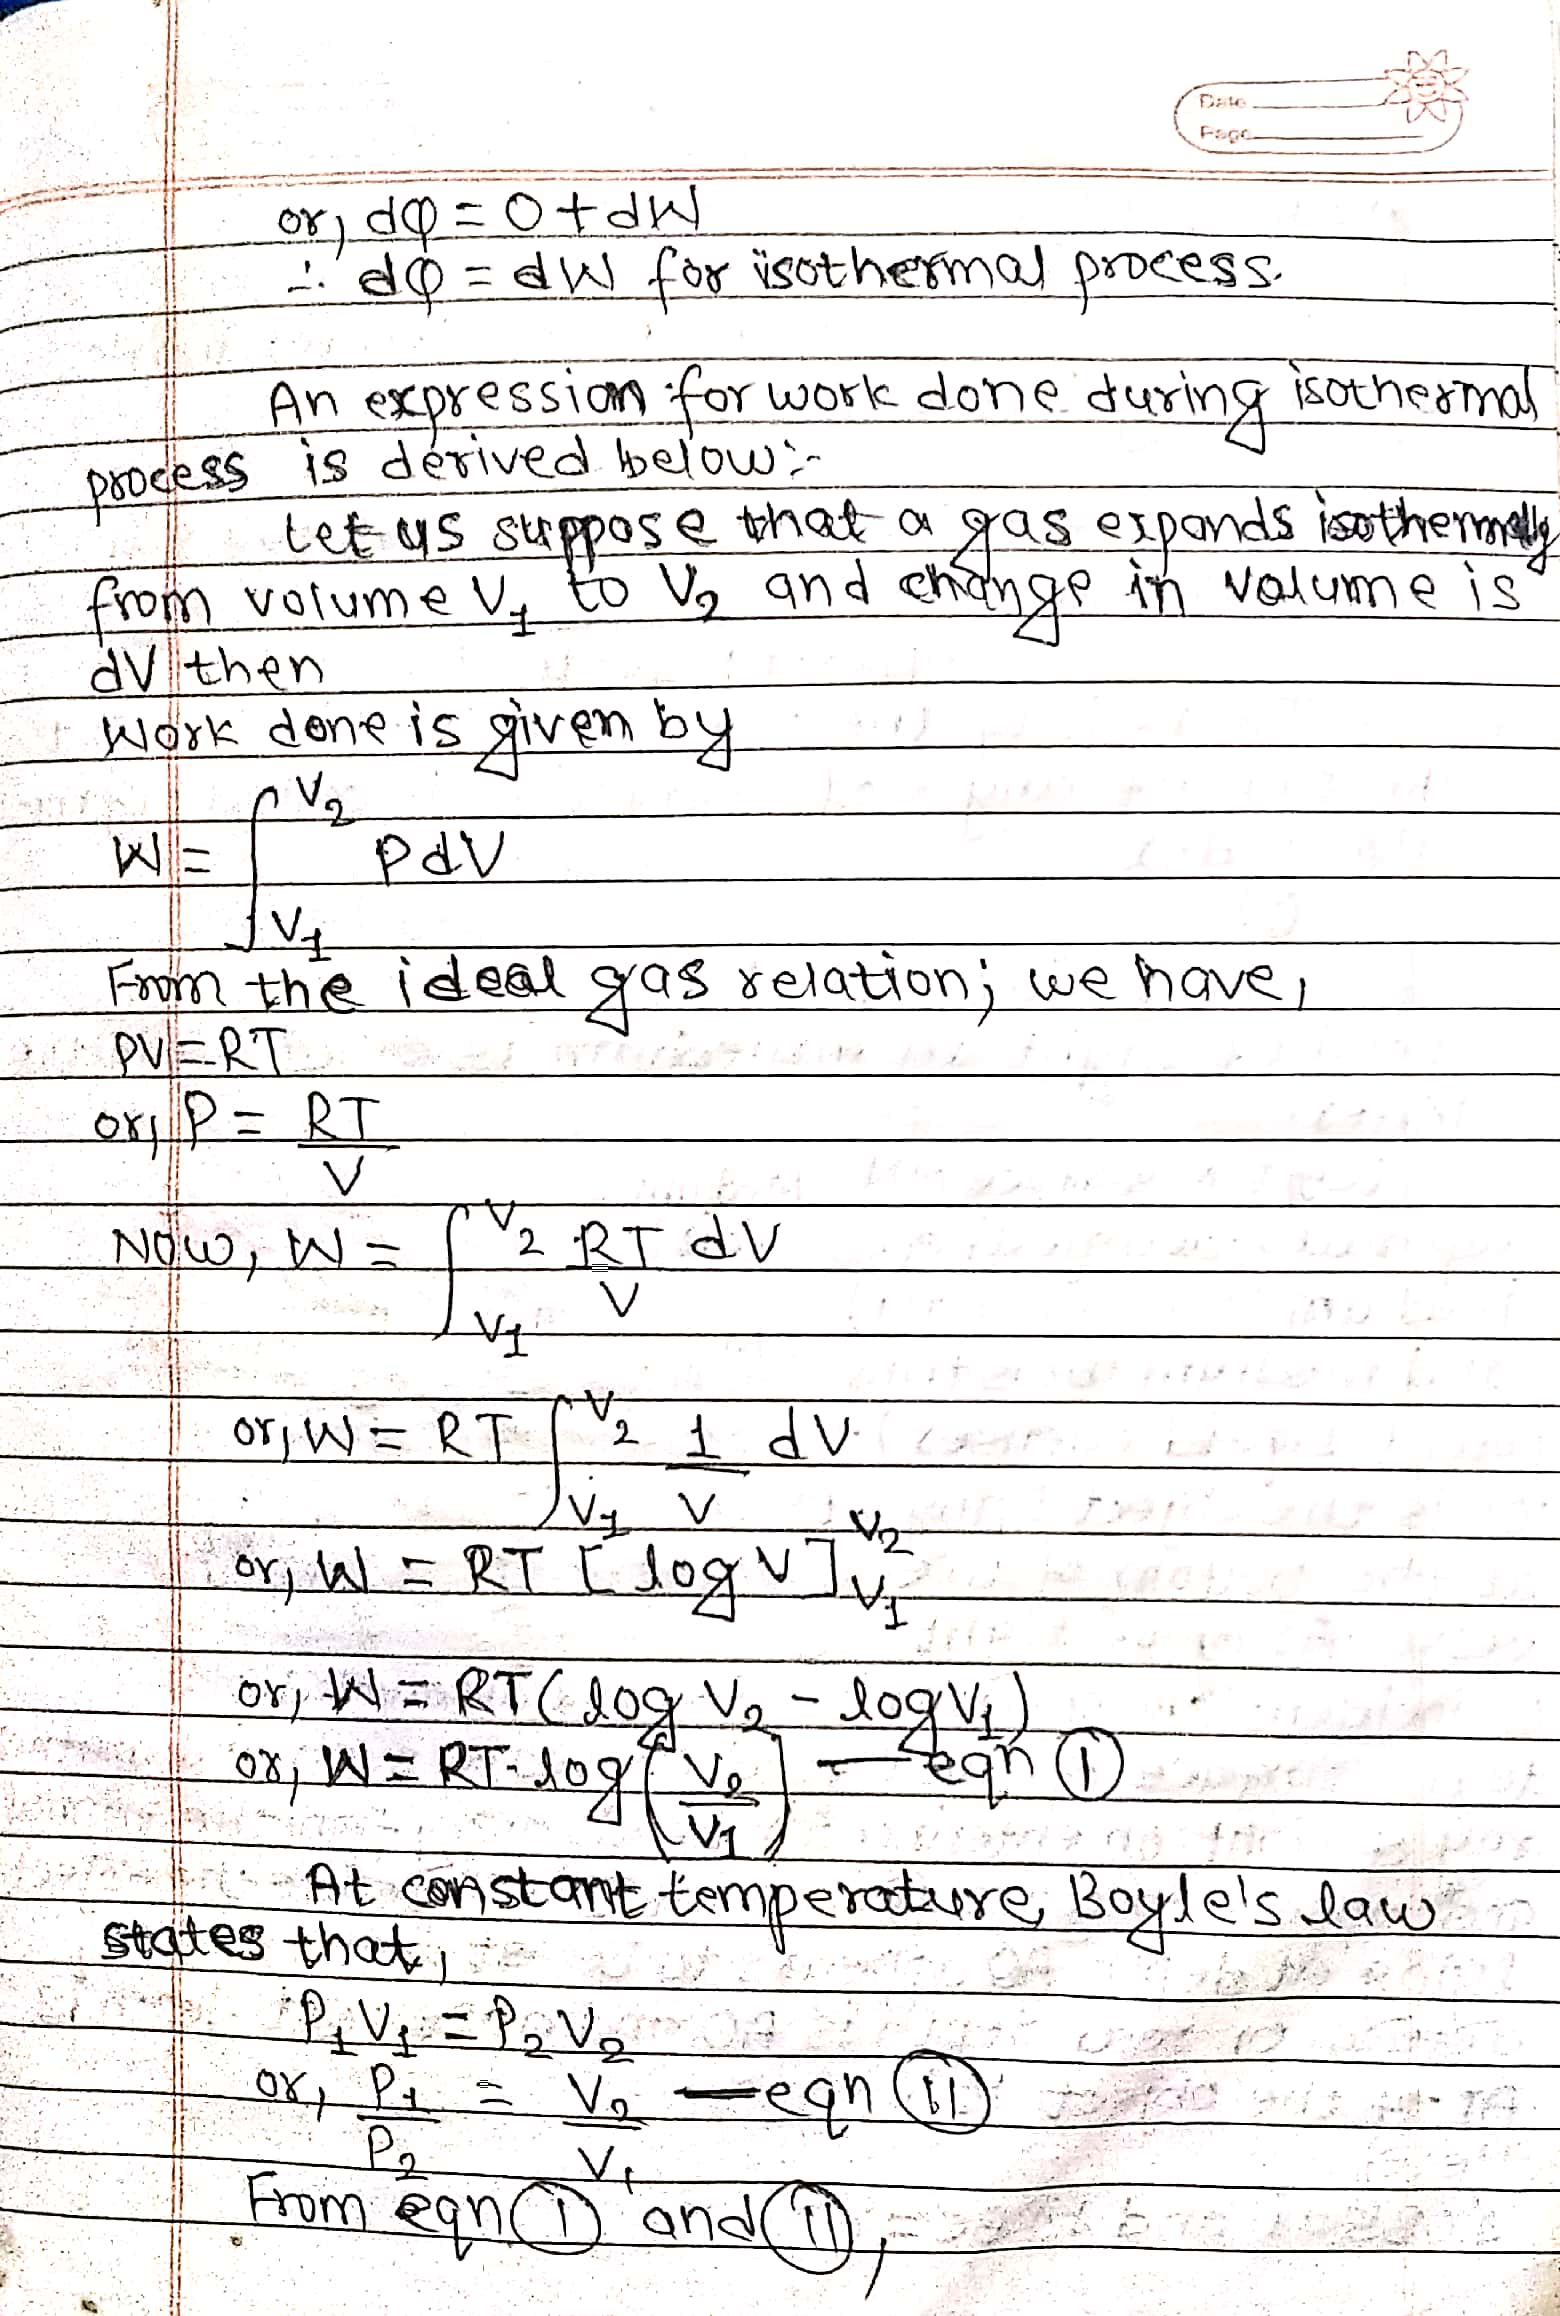 Date
Page
or, dQ = 0 + dW
∴ dQ = dW for isothermal process.
An expression for work done during isothermal
process is derived below:-
Let us suppose that a gas expands isothermally
from volume V₁ to V₂ and change in volume is
dV then
Work done is given by
W = ∫_{V₁}^{V₂} PdV
From the ideal gas relation; we have,
PV = RT
or, P = RT/V
Now, W = ∫_{V₁}^{V₂} RT/V dV
or, W = RT ∫_{V₁}^{V₂} 1/V dV
or, W = RT [log V]_{V₁}^{V₂}
or, W = RT (log V₂ - log V₁)
or, W = RT·log (V₂/V₁) — eqn (I)
At constant temperature, Boyle's law
states that,
P₁V₁ = P₂V₂
or, P₁/P₂ = V₂/V₁ — eqn (II)
From eqn (I) and (II),